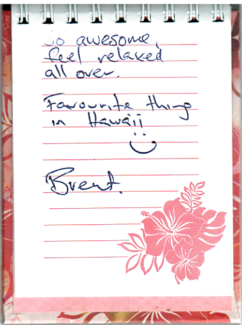 So awesome,
feel relaxed
all over.
Favourite thing
in Hawaii
Brent.